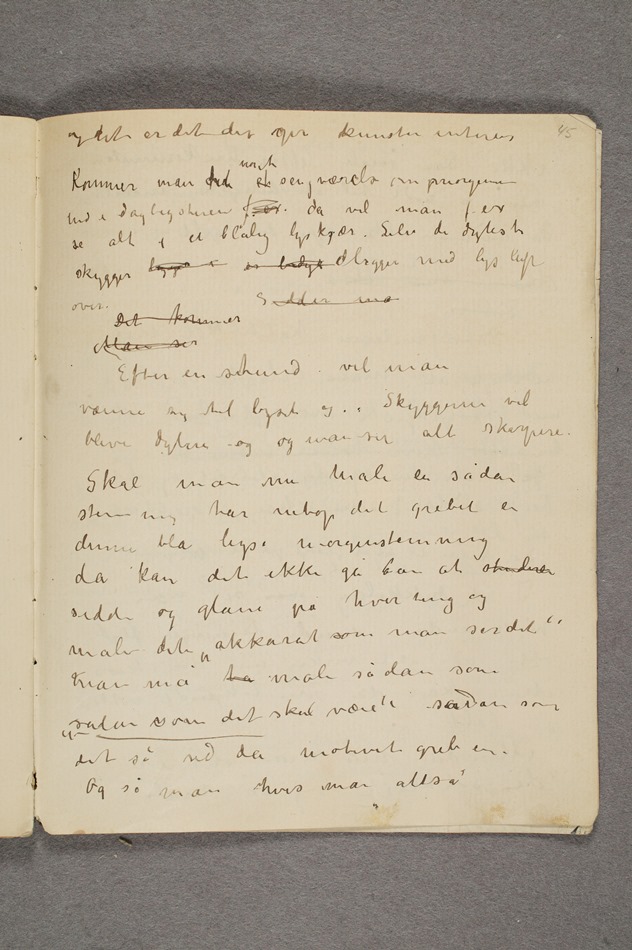 og det er det der gir kunsten interes 45
mørkt
Kommer man fra et sengværels om morgenen
ind i dagligstuen f. ex. da vil man f ex
se alt i et blålig lyskjær. Selv de dybeste
skygger ligger med lys luft
over. Sidder ma
Det kommer
Man ser
Efter en stund vil man
vænne sig til lyset og . Skyggerne vil
blive dybere og og man ser alt skarpere.
Skal man nu male en sådan
stemning har det grebet en
denne blå lyse morgenstemning
da kan det ikke gå an at
sidde og glane på hver ting og
male det „akkurat som man ser det“
man må ta male sådan som
„sadan som det skal være“ sådan som
det så ud da motivet greb en.
Og så man hvis man „altså“